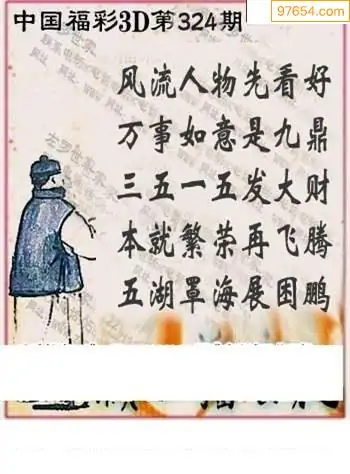 中国福彩3D第324期
97654.com
风流人物先看好
万事如意是九鼎
三五一五发大财
本就繁荣再飞腾
五湖罩海展困鹏